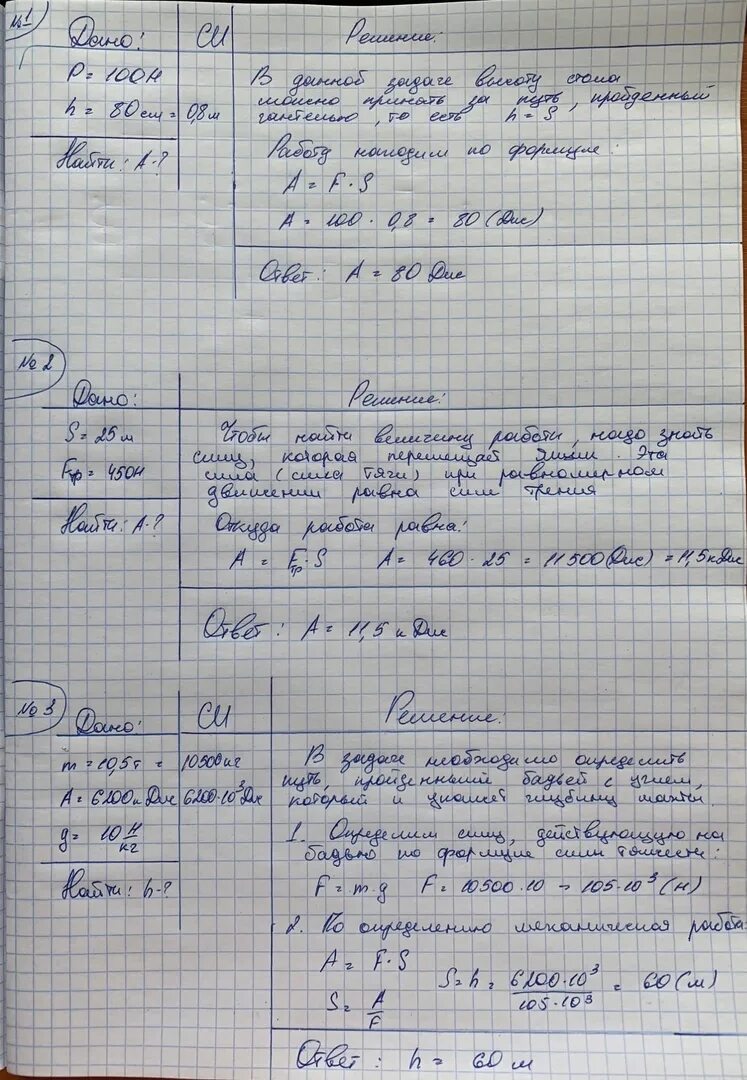 №1
Дано: СИ Решение:
P = 100Н
h = 80 см = 0,8 м
Найти: A-?
В данной задаче высоту стола
можно принять за путь, пройденный
гантелью, то есть h = S
Работу находим по формуле:
A = F · S
A = 100 · 0,8 = 80 (Дж)
Ответ: A = 80 Дж
№ 2
Дано: Решение:
S = 25 м
Fтр = 450Н
Найти: A-?
Чтобы найти величину работы, надо знать
силу, которая перемещает ящик. Эта
сила (сила тяги) при равномерном
движении равна силе трения
Откуда работа равна:
A = Fтр · S A = 460 · 25 = 11500 (Дж) = 11,5 кДж
Ответ: A = 11,5 кДж
№ 3
Дано: СИ Решение:
m = 10,5 т = 10500 кг
A = 6200 кДж 6200·10³ Дж
g = 10 Н/кг
Найти: h-?
В задаче необходимо определить
путь, пройденный бадьей с углем,
который и укажет глубину шахты.
1. Определим силу, действующую на
бадью по формуле силы тяжести:
F = m·g F = 10500·10 = 105·10³ (Н)
2. По определению механическая работа
A = F·S
S = A/F S = h = 6200·10³/105·10³ = 60 (м)
Ответ: h = 60 м